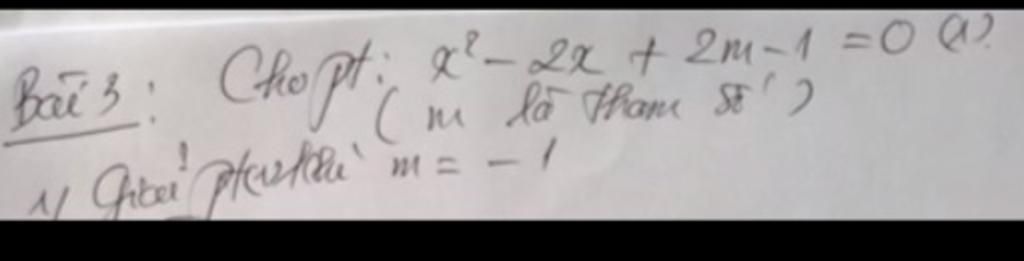 Bài 3: Cho pt: x² - 2x + 2m - 1 = 0 (1).
( m là tham số )
1/ Giải pt(1) khi m = - 1